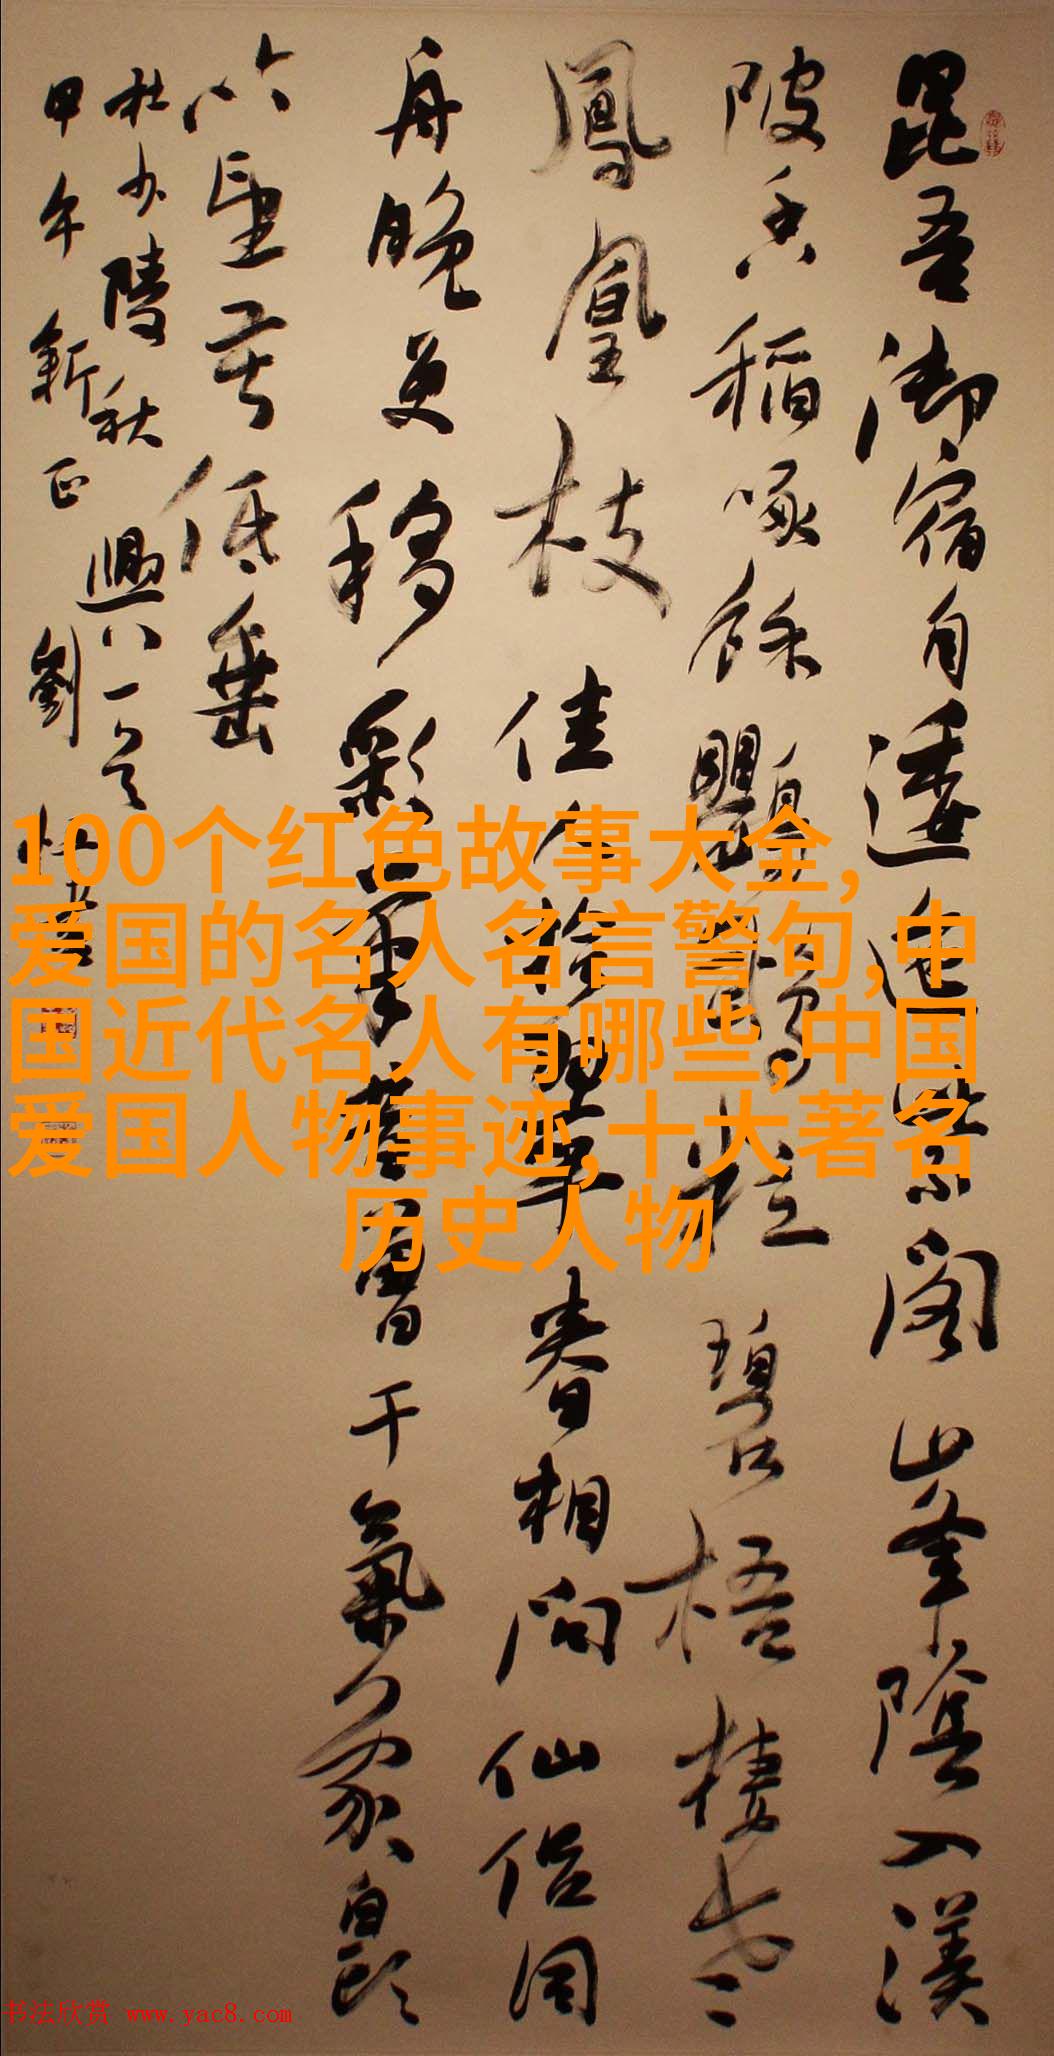 昆吾御宿自逶迤紫閣山峯陰入渼
陂香稻啄餘鸚鵡粒碧梧棲老
鳳凰枝佳人拾翠春相問仙侶同
舟晚更移彩筆昔曾干氣象白頭
吟望苦低垂
杜少陵秋興八
甲午新正劉
100个红色故事大全,
爱国的名人名言警句,中
国近代名人有哪些,中国
爱国人物事迹,十大著名
历史人物
书法欣赏 www.yac8.com